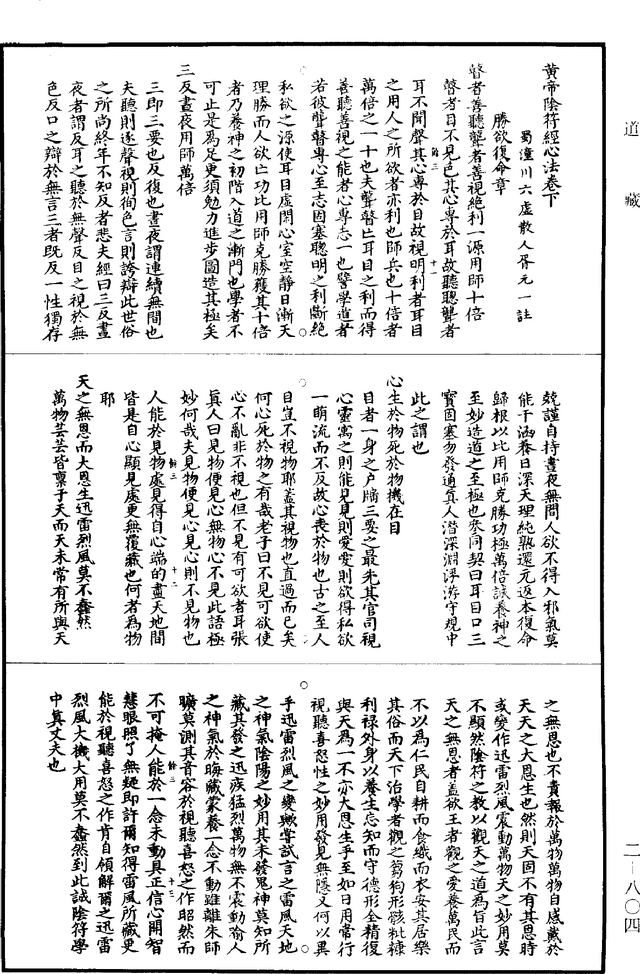 道藏
黃帝陰符經心法卷下
蜀潼川六虛散人胥元一註
勝欲復命章
瞽者善聽聾者善視絕利一源用師十倍
瞽者目不見色其心專於耳故聽聰聾者
耳不聞聲其心專於目故視明利者耳目
之用人之所欲者亦利也師兵也十倍者
萬倍之一十也夫聾瞽亡耳目之利而得
善聽善視之能者心專志一也譬學道者
若彼聾瞽專心至志固塞聰明之利斷絕
私欲之源使耳目虛閑心室空靜日漸天
理勝而人欲亡功比用師克勝獲其十倍
者乃養神之初階入道之漸門也學者不
可止是為足更須勉力進步圖造其極矣
三反晝夜用師萬倍
三即三要也反復也晝夜謂連續無間也
夫聽則逐聲視則徇色言則誇辯此世俗
之所尚終年不知反者悲夫經曰三反晝
夜者謂反耳之聽於無聲反目之視於無
色反口之辯於無言三者既反一性獨存
兢謹自持晝夜無間人欲不得入邪氣莫
能干涵養日深天理純熟還元返本復命
歸根以比用師克勝功極萬倍誠養神之
至妙造道之至極也參同契曰耳目口三
寶固塞勿發通真人潛深淵浮游守規中
此之謂也
心生於物死於物機在目
目者一身之戶牖三要之最先其官司視
心靈寓之則能見見則愛愛則欲得私欲
一萌流而不反故心喪於物也古之至人
目豈不視物耶蓋其視物也直過而已矣
何心死於物之有哉老子曰不見可欲使
心不亂非不視也但不見有可欲者耳張
真人曰見物便見心無物心不見此語極
妙何哉夫見物便見心見心則不見物也
人能於見物處見得自心端的盡天地間
皆是自心顯見處更無覆藏也何者為物
耶
天之無恩而大恩生迅雷烈風莫不蠢然
萬物芸芸皆稟于天而天未常有所與天
之無恩也不責報於萬物萬物自感戴於
天天之大恩生也然則天固不有其恩時
或變作迅雷烈風震動萬物天之妙用莫
不顯然陰符之教以觀天之道為旨此言
天之無恩者蓋欲王者觀之愛養萬民而
不以為仁民自耕而食織而衣安其居樂
其俗而天下治學者觀之芻狗形骸粃糠
利祿外身以養生忘知而守德形全精復
與天為一不亦大恩生乎至如日用常行
視聽喜怒性之妙用發見無隱又何以異
乎迅雷烈風之變歟嘗試言之雷風天地
之神氣陰陽之妙用其未發鬼神莫知所
藏其發之迅疾猛烈萬物無不震動喻人
之神氣於晦藏蒙養一念不動雖離朱師
曠莫測其音容於視聽喜怒之作昭然而
不可掩人能於一念未動具正信心開智
慧眼照了無疑即許爾知得雷風所藏更
能於視聽喜怒之作肯自領解爾之迅雷
烈風大機大用莫不蠢然到此誠陰符學
中真丈夫也
二-八〇四